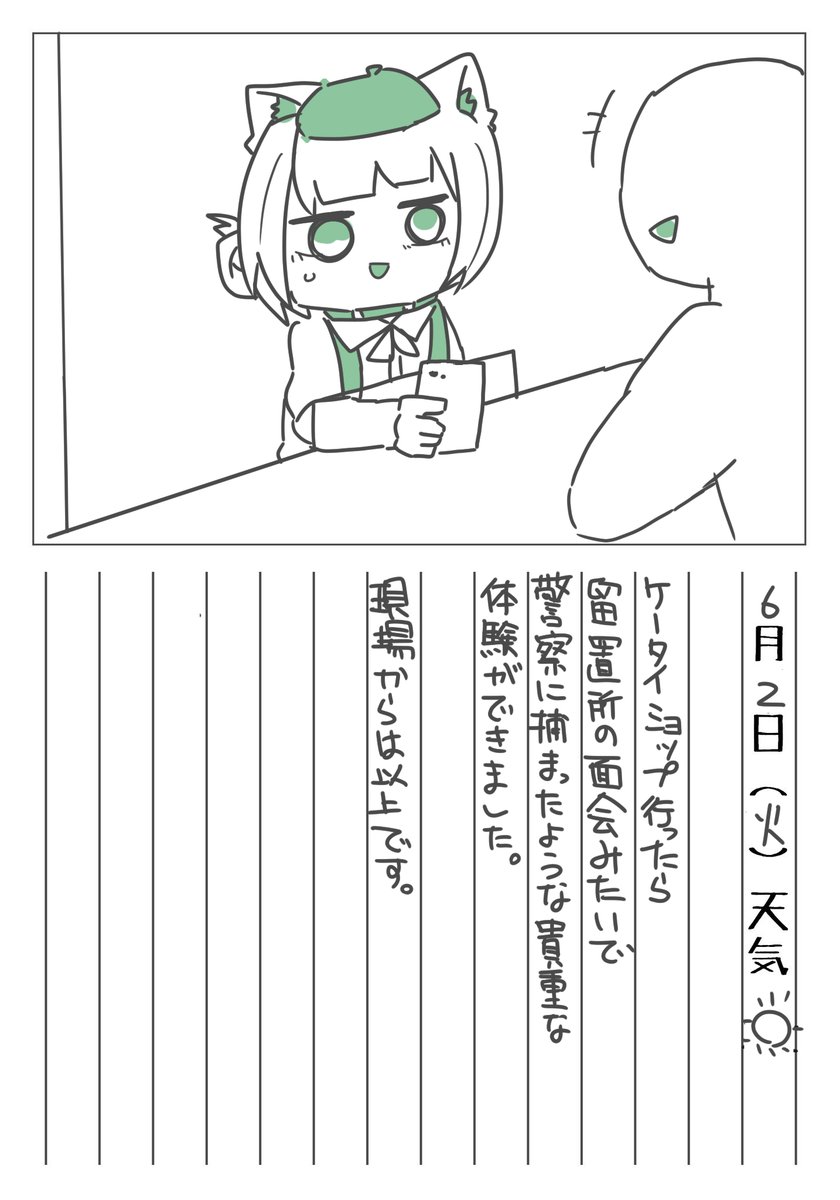 6月2日(火)天気
ケータイショップ行ったら
留置所の面会みたいで
警察に捕まったような貴重な
体験ができました。
現場からは以上です。